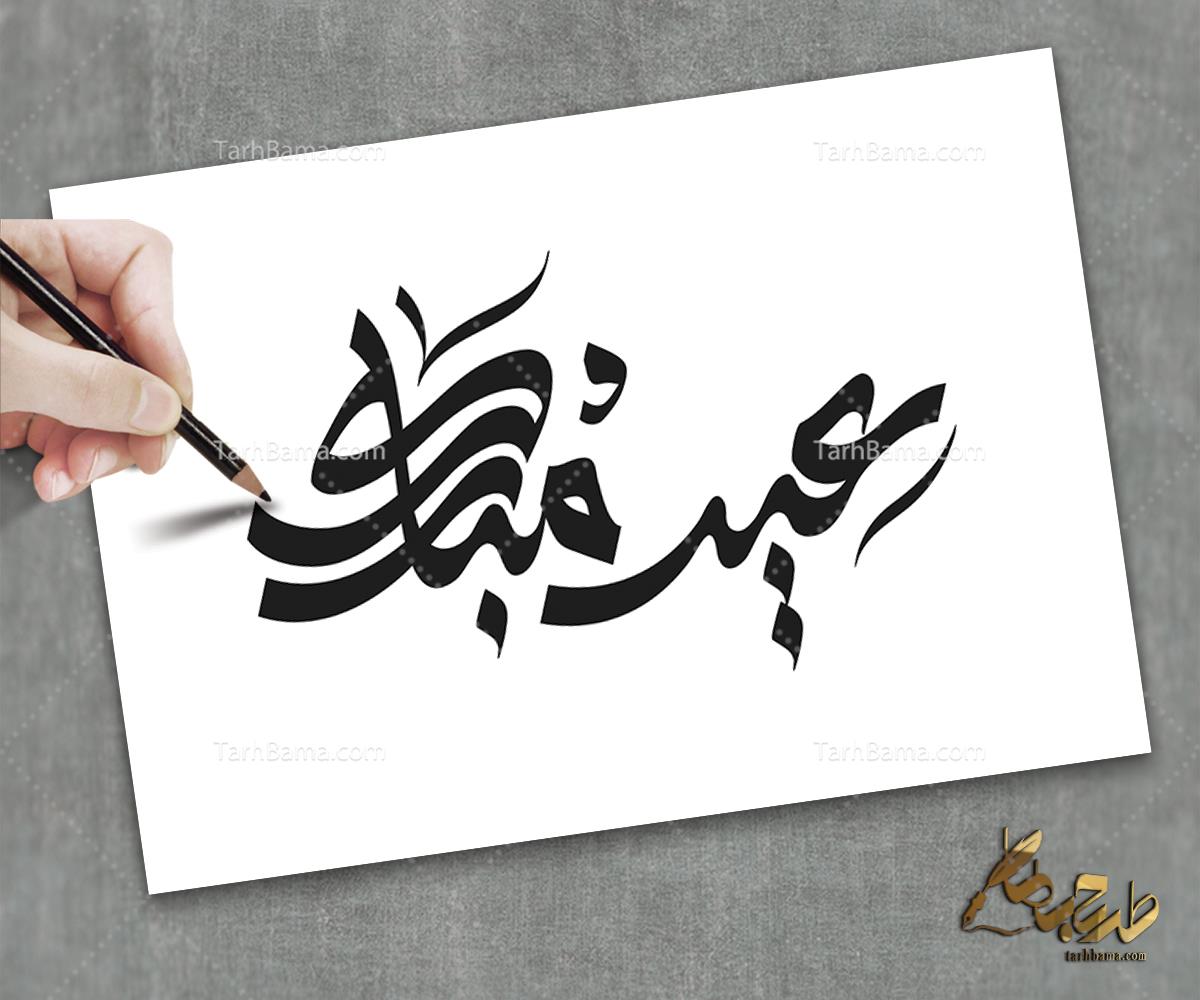 TarhBama.com TarhBama.com
عید مبارک
TarhBama.com TarhBama.com
TarhBama.com TarhBama.com
طرح با ما
tarhbama.com